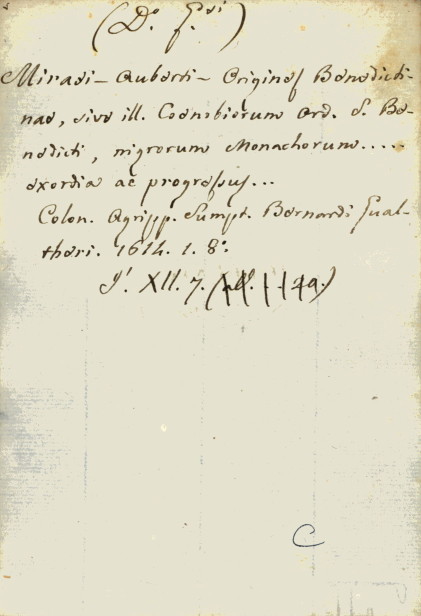 (D.° f.si)
Miraei – Auberti – Origines Benedicti-
nae, sive ill. Coenobiorum Ord. S. Be-
nedicti, nigrorum Monachorum.....
exordia ac progressus...
Colon. Agripp. Sumpt. Bernardi Gual-
theri. 1614. 1. 8°.
XII. 7.
C